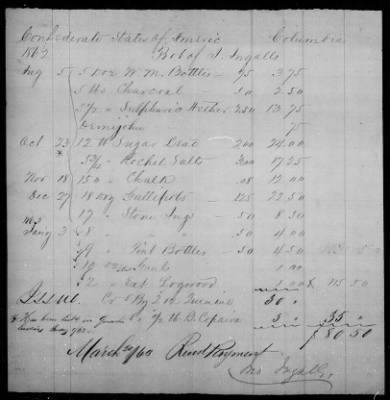 Confederate States of Americ Columbia
1862 Bot of T. Ingalls
Aug 5 5 doz W. M. Bottles - 75 3.75
5 lbs Charcoal - 50 2.50
5 1/2 " Sulphuric Aether 250 13.75
Demijohn 75
Oct 23 12 lb Sugar Lead 200 24.00
5 3/4 " Rochel Salts 300 17.25
Nov 18 150 " Chalk 08 12.00
Dec 27 18 doz Gallipots 125 22.50
17 " Stone Jug - 50 8.50
Jany 3 8 " " " - 50 4.00
9 " Pint Bottles - 50 4.50
1.00
2 " Ext Logwood 1.00 115 50
Issue Co 5 By 2 oz Quinine 30 "
lb B. Copaiva 5 " 35 "
$ 80.50
March 63 Recd Payment
Ingalls